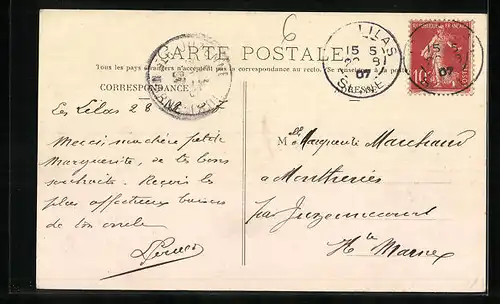 6
CARTE POSTALE
Tous les pays étrangers n'acceptent pas la correspondance au recto. Se renseigner à la poste
CORRESPONDANCE
LILAS
15 5
07
SEINE
10
Les Lilas 28
Merci ma chère petite
Marguerite, de tes bons
souhaits. Reçois les
plus affectueux baisers
de ton oncle
Mlle Marguerite Marchand
à
par Juzennecourt
Hte Marne